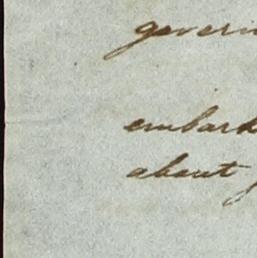 govern
embark
about